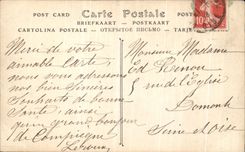 POST CARD Carte Postale POSTKARTE
BRIEFKAART POSTKAART
CARTOLINA POSTALE ОТКРЫТОЕ ПИСЬМО
10
Merci de votre
aimable Carte
nous vous adressons
nos bien sincères
souhaits de bonne
Santé, ainsi
qu'un grand bonjour
de Compiègne
Monsieur Madame
Ed
5 rue de l'Eglise
Domont
Seine et Oise